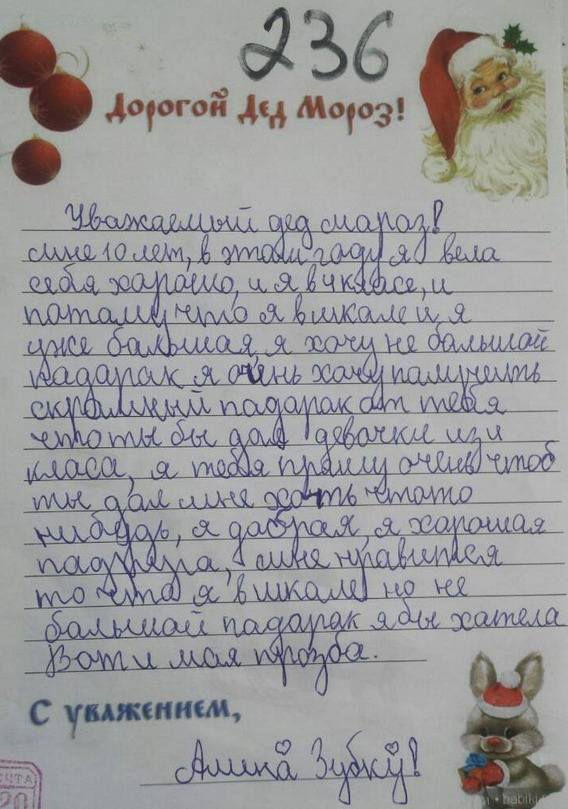 236
Дорогой Дед Мороз!
Уважаемый дед мараз!
мне 10 лет, в этом гаду я вела
себя харашо, и я в 4 класе, и
патаму что я в шкале и я
уже балшая, я хочу не балшой
падарак я очень хачу палучить
скрамный падарак от тебя
что ты бы дал девачки из и
класа, я тебя прашу очень чтоб
ты дал мне хоть чтото
нибудь, я добрая, я харошая
падруга, мне нравится
то что я в шкале но не
балшой падарак я бы хатела
Вот и моя прозба.
С уважением,
Алина Зубку!
ЧТА
20
babiki